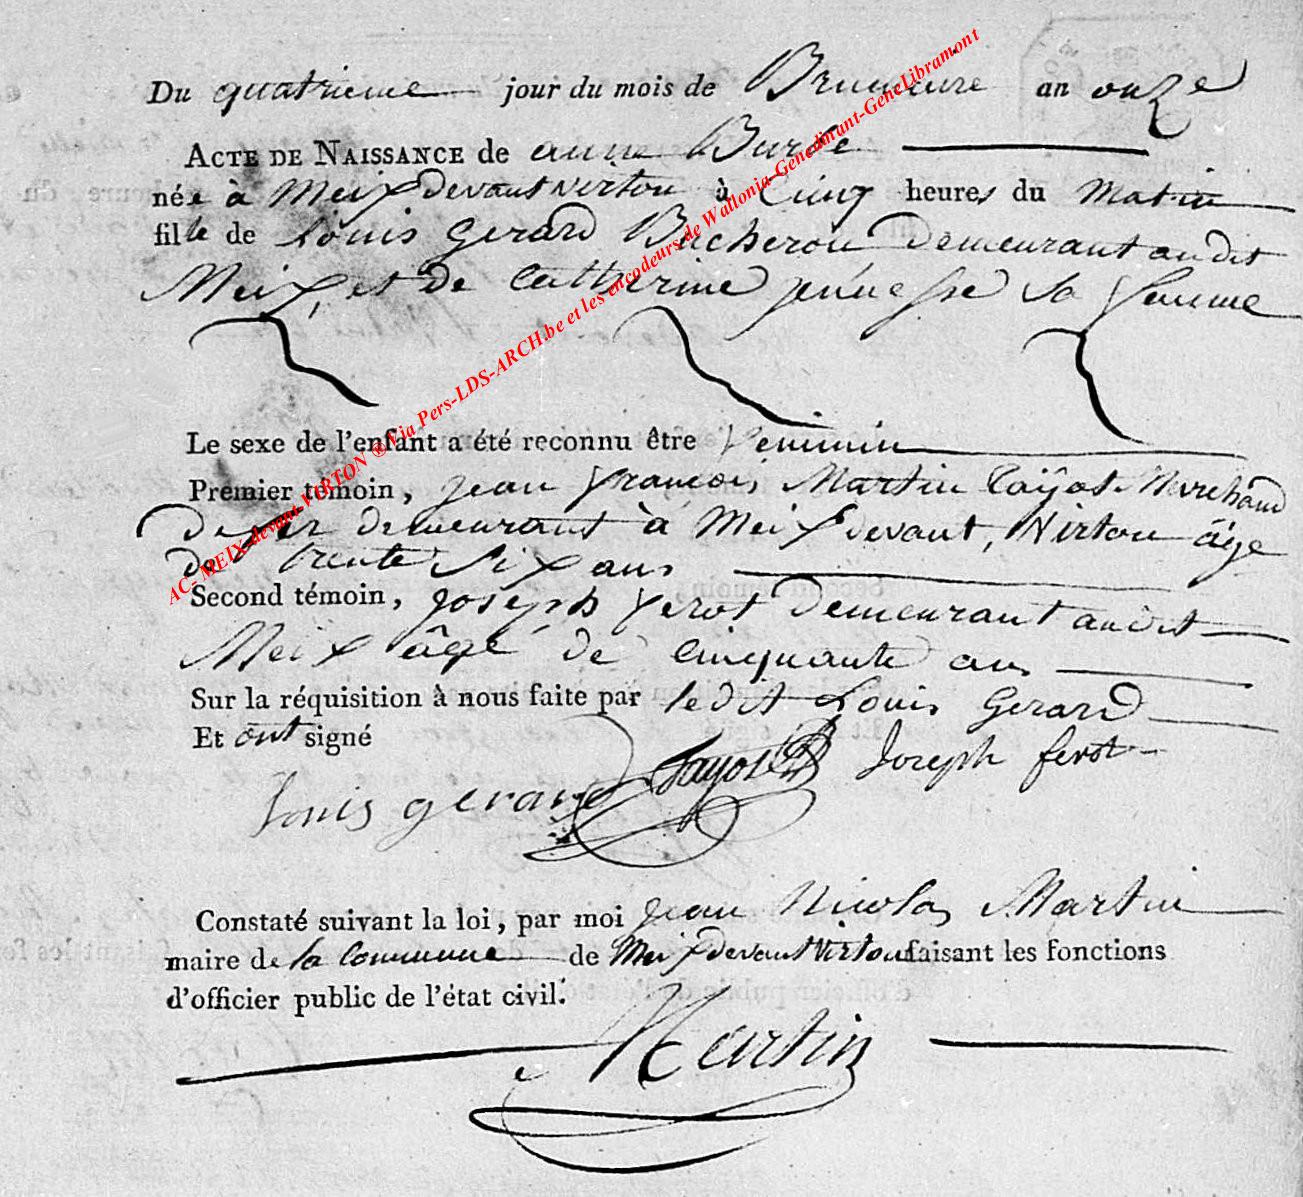 Du quatrieme jour du mois de Brumaire an onze
ACTE DE NAISSANCE de anne Barbe
née à Meix devant virton à Cinq heures du Matin
fille de Louis Gerard Bucheron demeurant audit
Meix, et de Catherine jeunesse Sa femme
Le sexe de l'enfant a été reconnu être feminin
Premier témoin, jean francois Martin Tayot Marchand
de fer demeurant à Meix devant, Virton âge
de trente Six ans
Second témoin, joseph ferot demeurant audit
Meix âgé de Cinquante ans
Sur la réquisition à nous faite par ledit Louis Gerard
Et ont signé
louis gerard Tayot Joseph ferot
Constaté suivant la loi, par moi jean Nicolas Martin
maire de la Commune de Meix devant Virton faisant les fonctions
d'officier public de l'état civil.
Martin
AC- MEIX-devant-VIRTON ® Via Pers-LDS-ARCH.be et les encodeurs de Wallonia-Genedinant-GeneLibramont